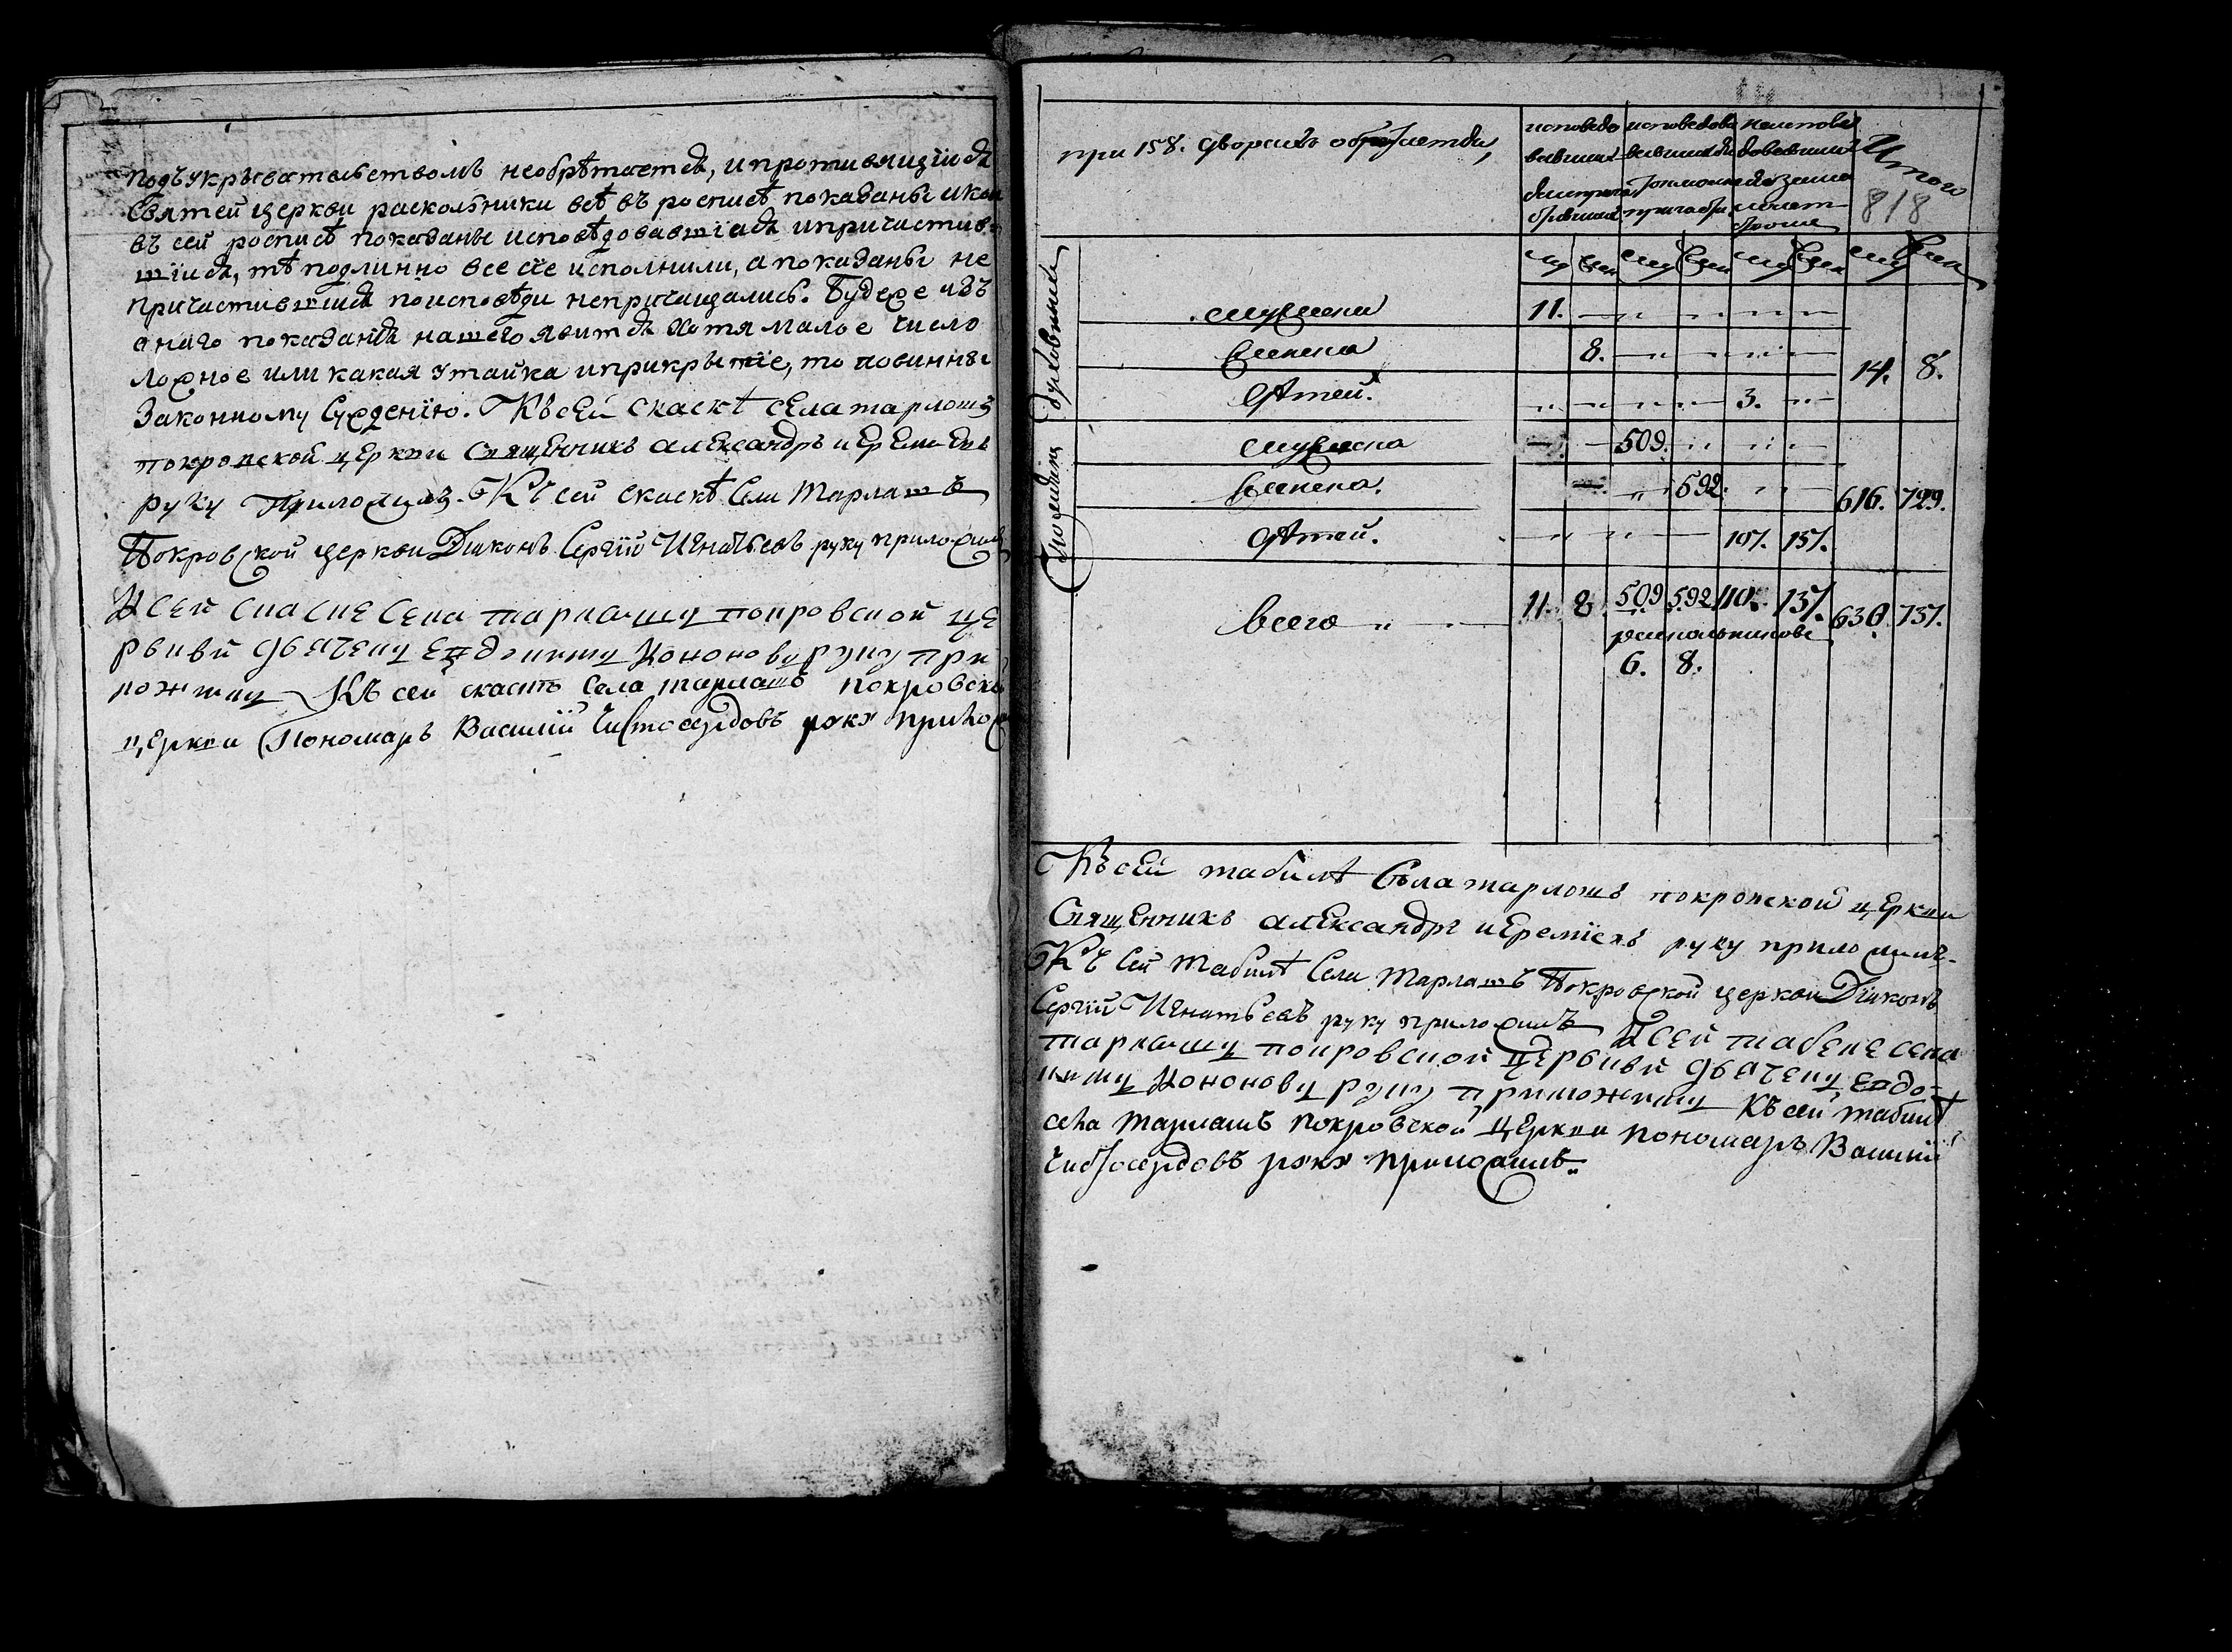 подъукрывательствомъ необрѣтается, ипротивящіися
Святей церкви раскольники всѣ въ росписѣ показаны икои
въ сей росписѣ показаны исповѣдовавшіися ипричастив-
шіися, тѣ подлинно все сіе исполнили, а показаны не
причастившися поисповѣди непричащались. Будеже изъ
онаго показанія нашего явится хотя малое число
ложное или какая утайка иприкрытіе, то повинны
Законному Сужденію. Къ сей скаскѣ села тарлашъ
покровской церкви священникъ александръ иеремиевъ
руку Приложилъ. Къ сей скаскѣ Села Тарлашъ
Покровской церкви Діаконъ Сергій Игнатьевъ руку приложилъ
К сей скаске села тарлашъ покровской це
рквви дьячекъ Кононовъ руку при
ложилъ Къ сей скаскѣ Села тарлашъ покровской
церкви Пономарь Василій Чистосердовъ руку прилож
при 158. дворахъ обрѣтается,
исповедо исповедова неиспове
Итого
818
му жен му жен му жен му жен
Духовныхъ
мужеска 11.
женска 8.
дѣтей. 3.
14. 8.
мужеска 509.
женска. 592.
дѣтей. 107. 137.
616. 729.
всего 11. 8. 509 592 110. 137. 630. 737.
раскольниковъ
6. 8.
Къ сей табилѣ Села тарлашъ покровской церкви
Священникъ александръ иеремиевъ руку приложилъ.
Къ Сей Табилѣ Села Тарлашъ Покровской церкви Діаконъ
Сергій Игнатьевъ руку приложилъ К сей табеле села
тарлашъ покровской церквви дьячекъ
Кононовъ руку приложилъ Къ сей табилѣ
села Тарлашъ покровской церкви пономарь Василій
Чистосердовъ руку приложилъ..